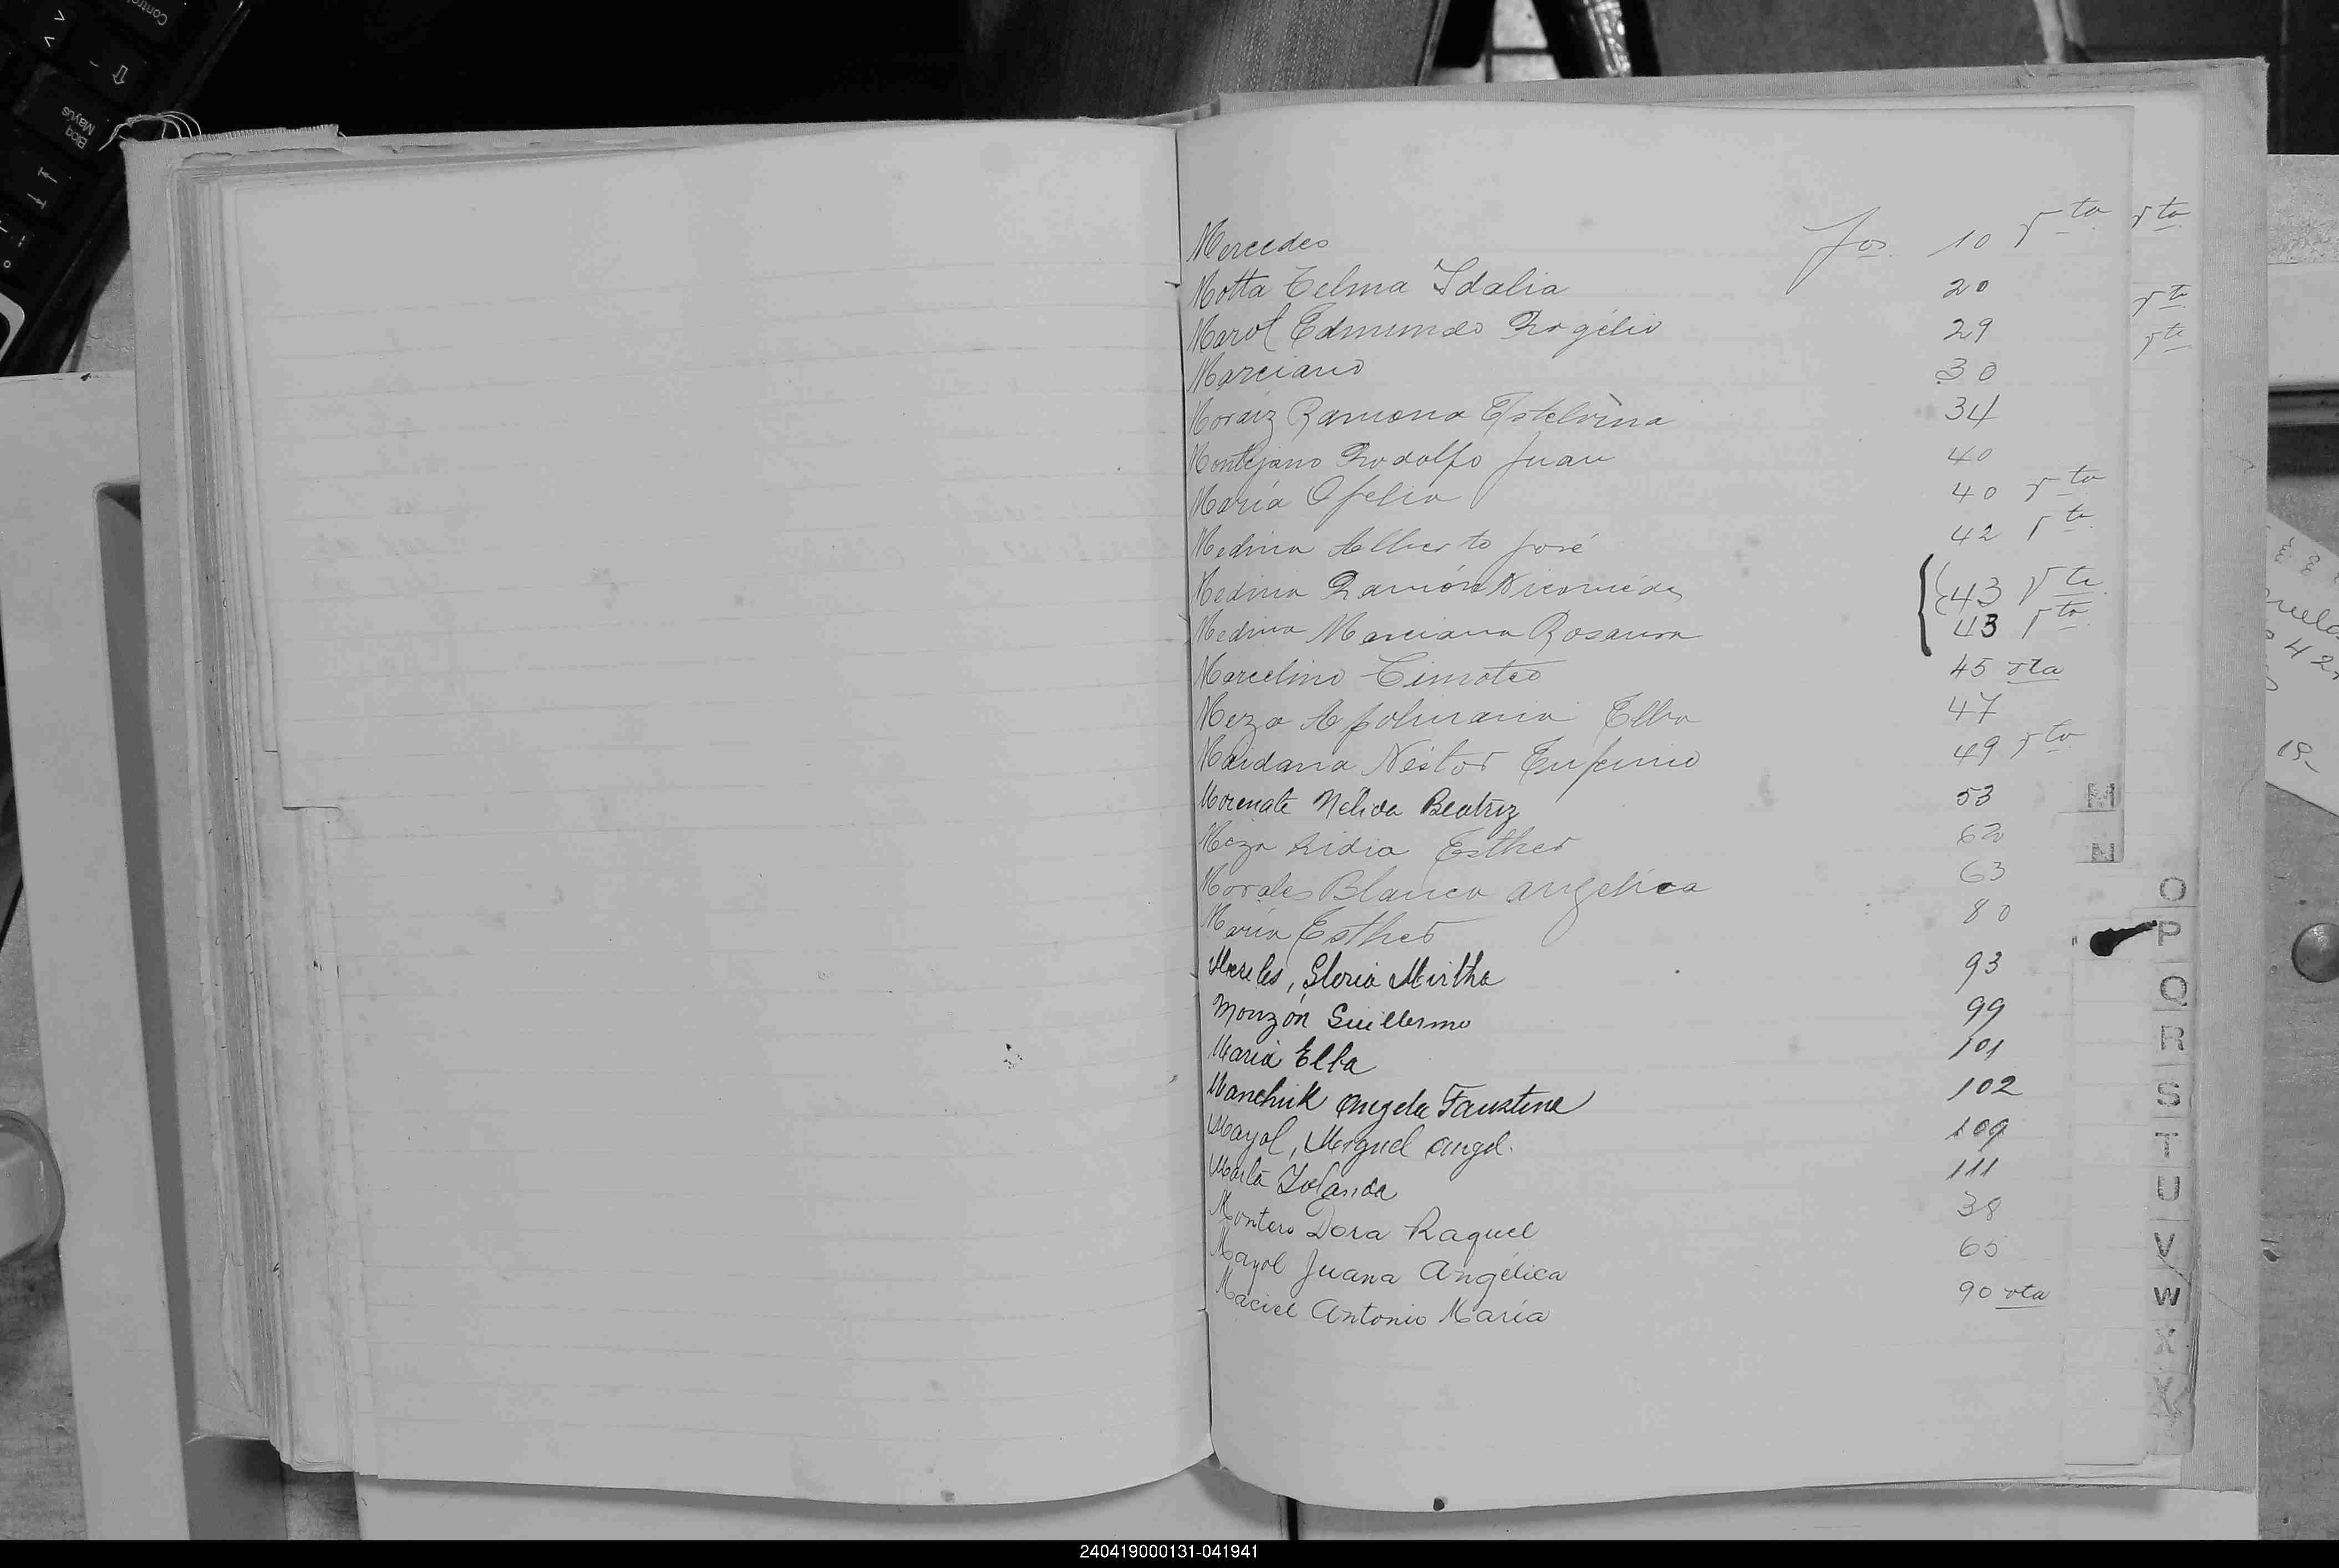 Mercedes fos. 10 vta
Motta Telma Idalia 20
Marol Edmundo Rogélio 29
Marciano 30
Moraiz Ramona Etstelvina 34
Montejano Rodolfo Juan 40
María Ofelia 40 vta
Medina Alberto José 42 vta
Medina Ramón Nicomédes 43 vta
Medina Marciana Rosaura 43 vta
Marcelino Timoteo 45 vta
Meza Apolinaria Elba 47
Maidana Néstor Eufemio 49 vta
Morenate Nélida Beatriz 53
Meza Lidia Esther 62
Morales Blanca angelica 63
María Esther 80
Mereles, Gloria Mirtha 93
Monzón Guillermo 99
María Elba 101
Manchuk Angela Faustina 102
Mayol, Miguel angel. 109
Marta Yolanda 111
Montero Dora Raquel 38
Mayol Juana Angélica 65
Maciel Antonio María 90 vta
vta
vta
vta
M
N
O
P
Q
R
S
T
U
V
W
X
Y
240419000131-041941